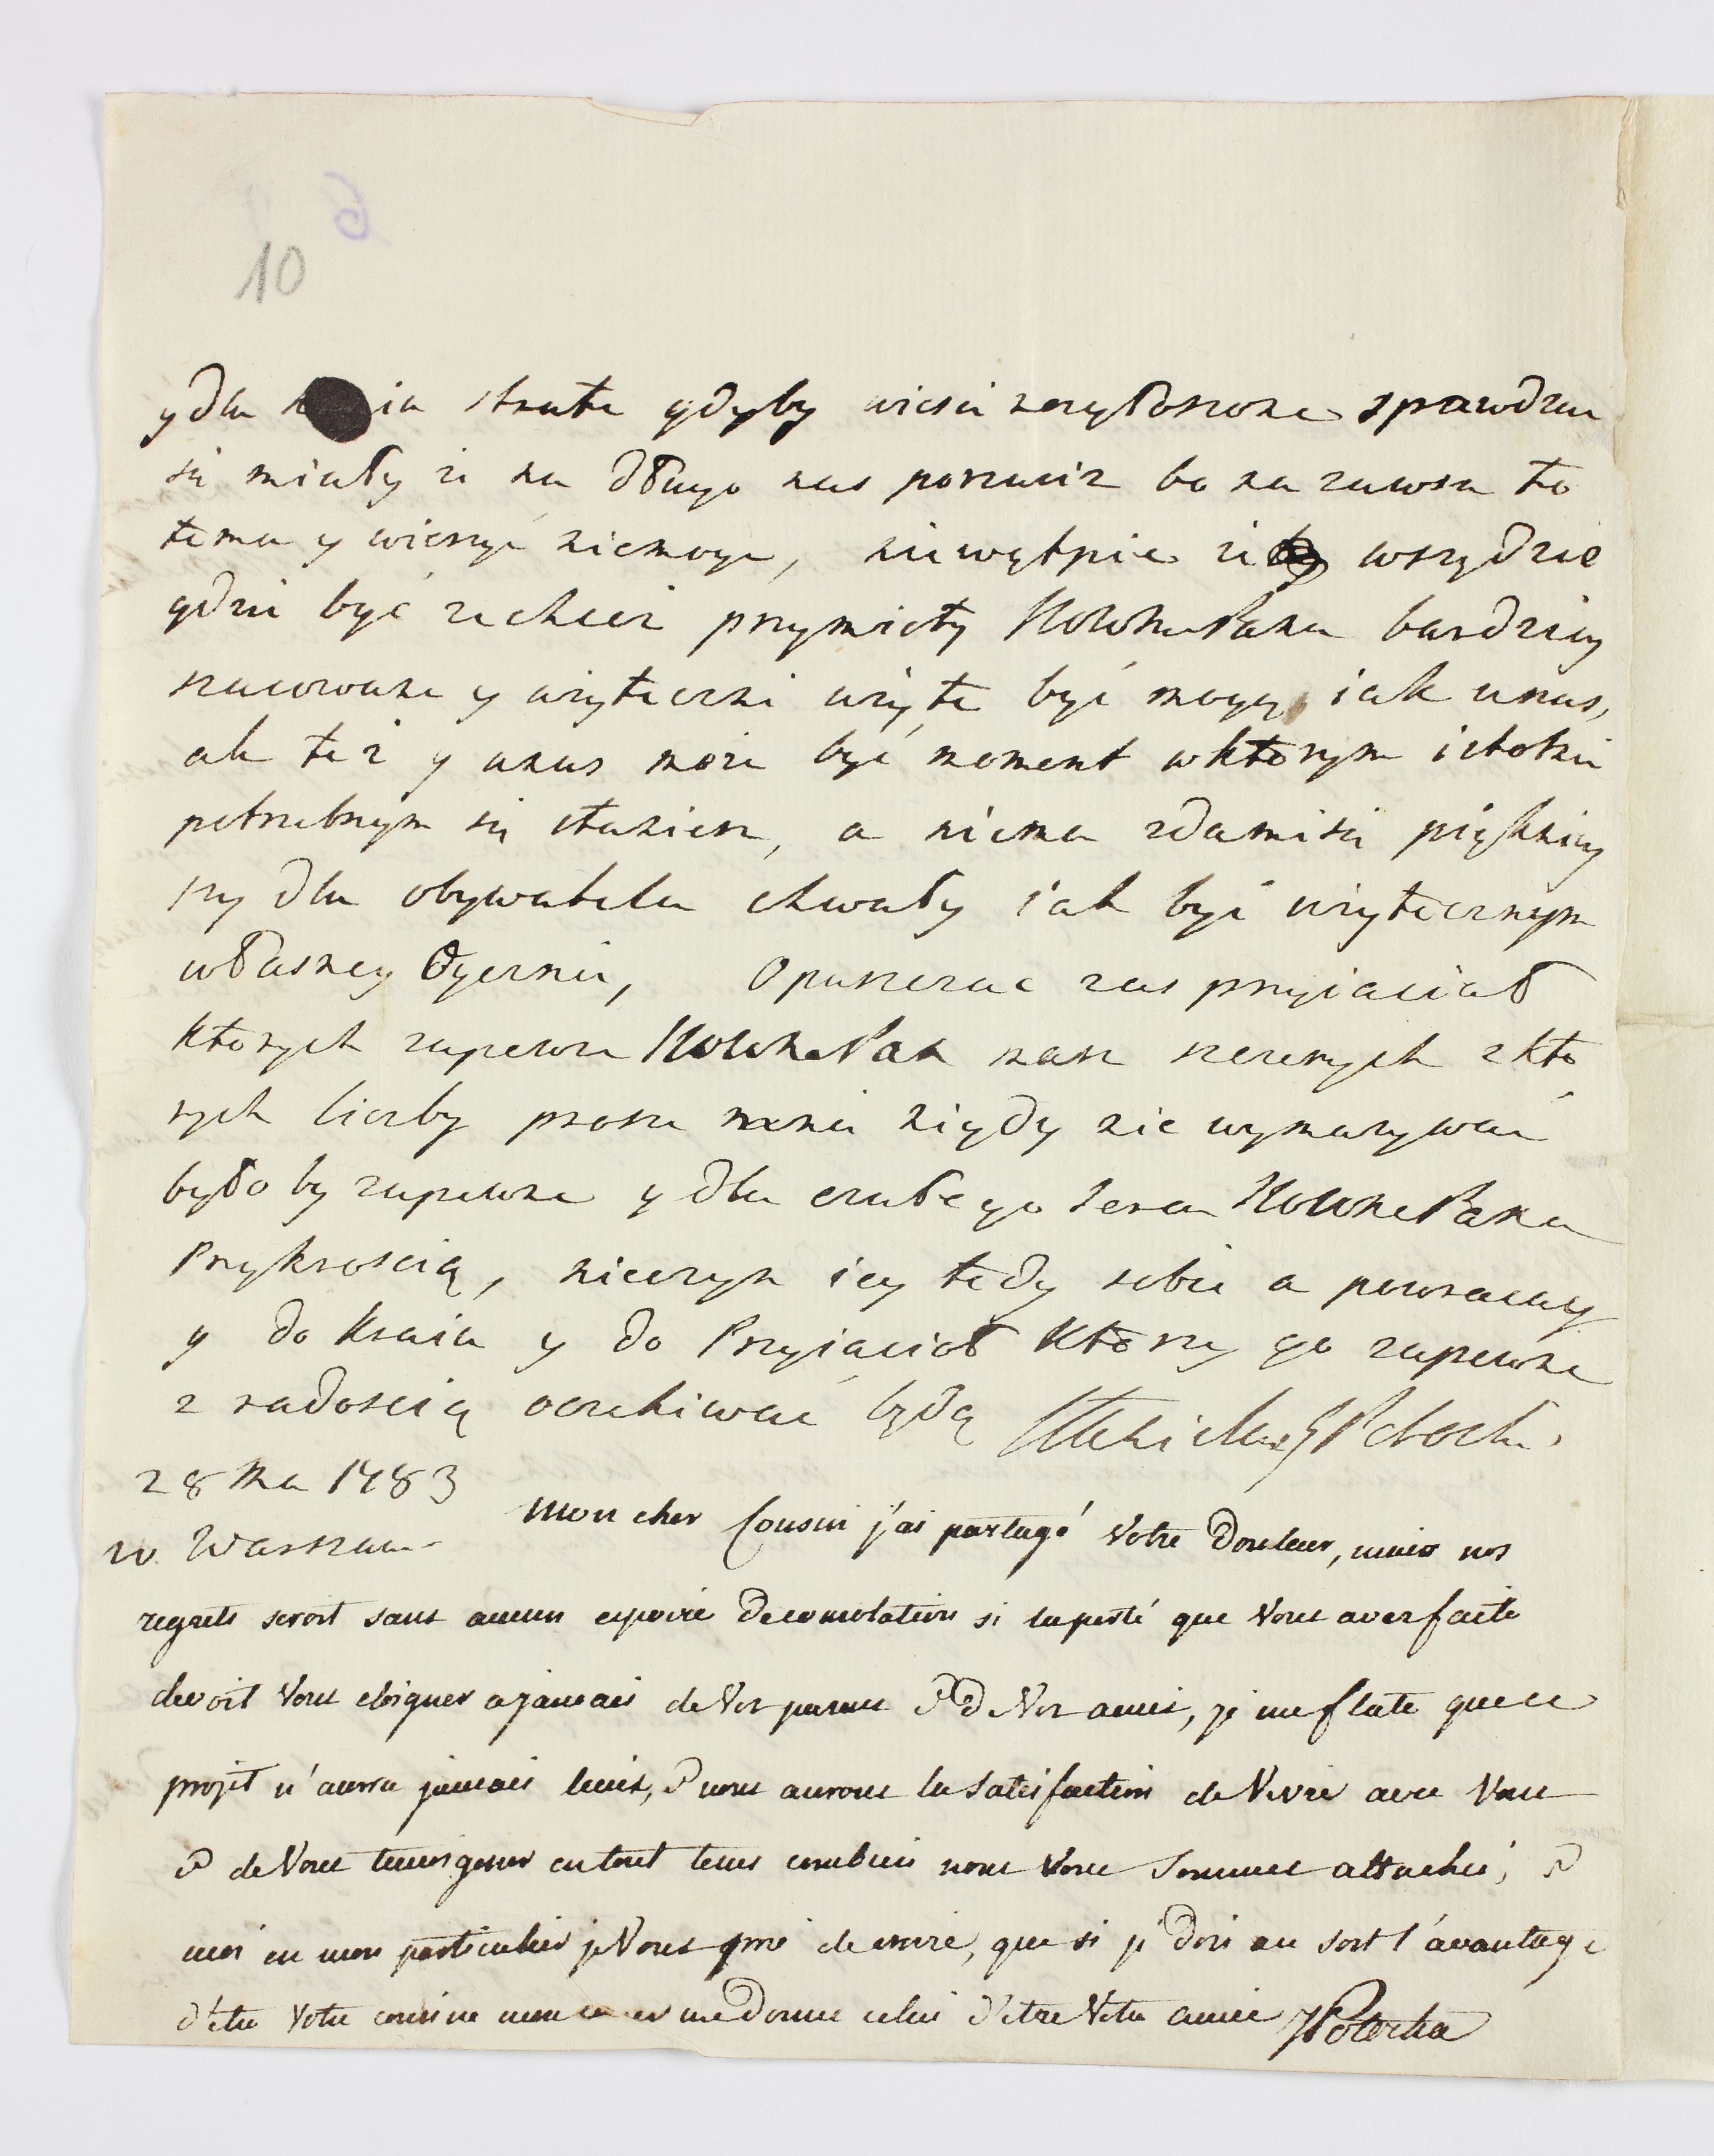 10
6
y dla kraiu strata gdyby wiesci rozgłoszone sprawdzac
się miały że na długo nas porzucisz bo na zawsze to
temu y wierzyć niemogę, niewątpie że wszędzie
gdzie być zechcesz przymioty WMM Pana bardziey
szacowane y użyteczni użyte być mogą, iak unas,
ale też y unas może być moment wktorym istotnie
potrzebnym się staniesz, a niema zdamisię piękniey
szy dla obywatela chwały iak być użytecznym
własney Oyczyznie, Opuszczac zas przyiacioł
których zapewne WMM Pan masz szczerych z kto
rych liczby prosze mnie nigdy nie wymazywać
było by zapewne y dla czułego serca WMM Pana
Przykroscią, nieczyn iey tedy sobie a powracay
y do Kraiu y do Przyiacioł Którzy go zapewne
z radoscią oczekiwac będą Potocki
28 Ma 1783
w Warszaw
Mon cher Cousin j'ai partagé Votre Douleur, mais nos
regrets seroit sans aucun espoire de consolation si la perte que Vous avez faite
devoit Vous eloigner a jamais de Vos parens & de Vos amis, je me flate que ce
projet n'aurra jamais lieux, & nous aurons la satisfaction de Vivre avec Vous
& de Vous temoigner en tout tems combien nous Vous sommes attachés, &
moi en mon particulier je Vous prie de croire, que si je Dois au sort l'avantage
d'etre Votre cousine mon coeur me Donne celui d'etre Votre amie Potocka